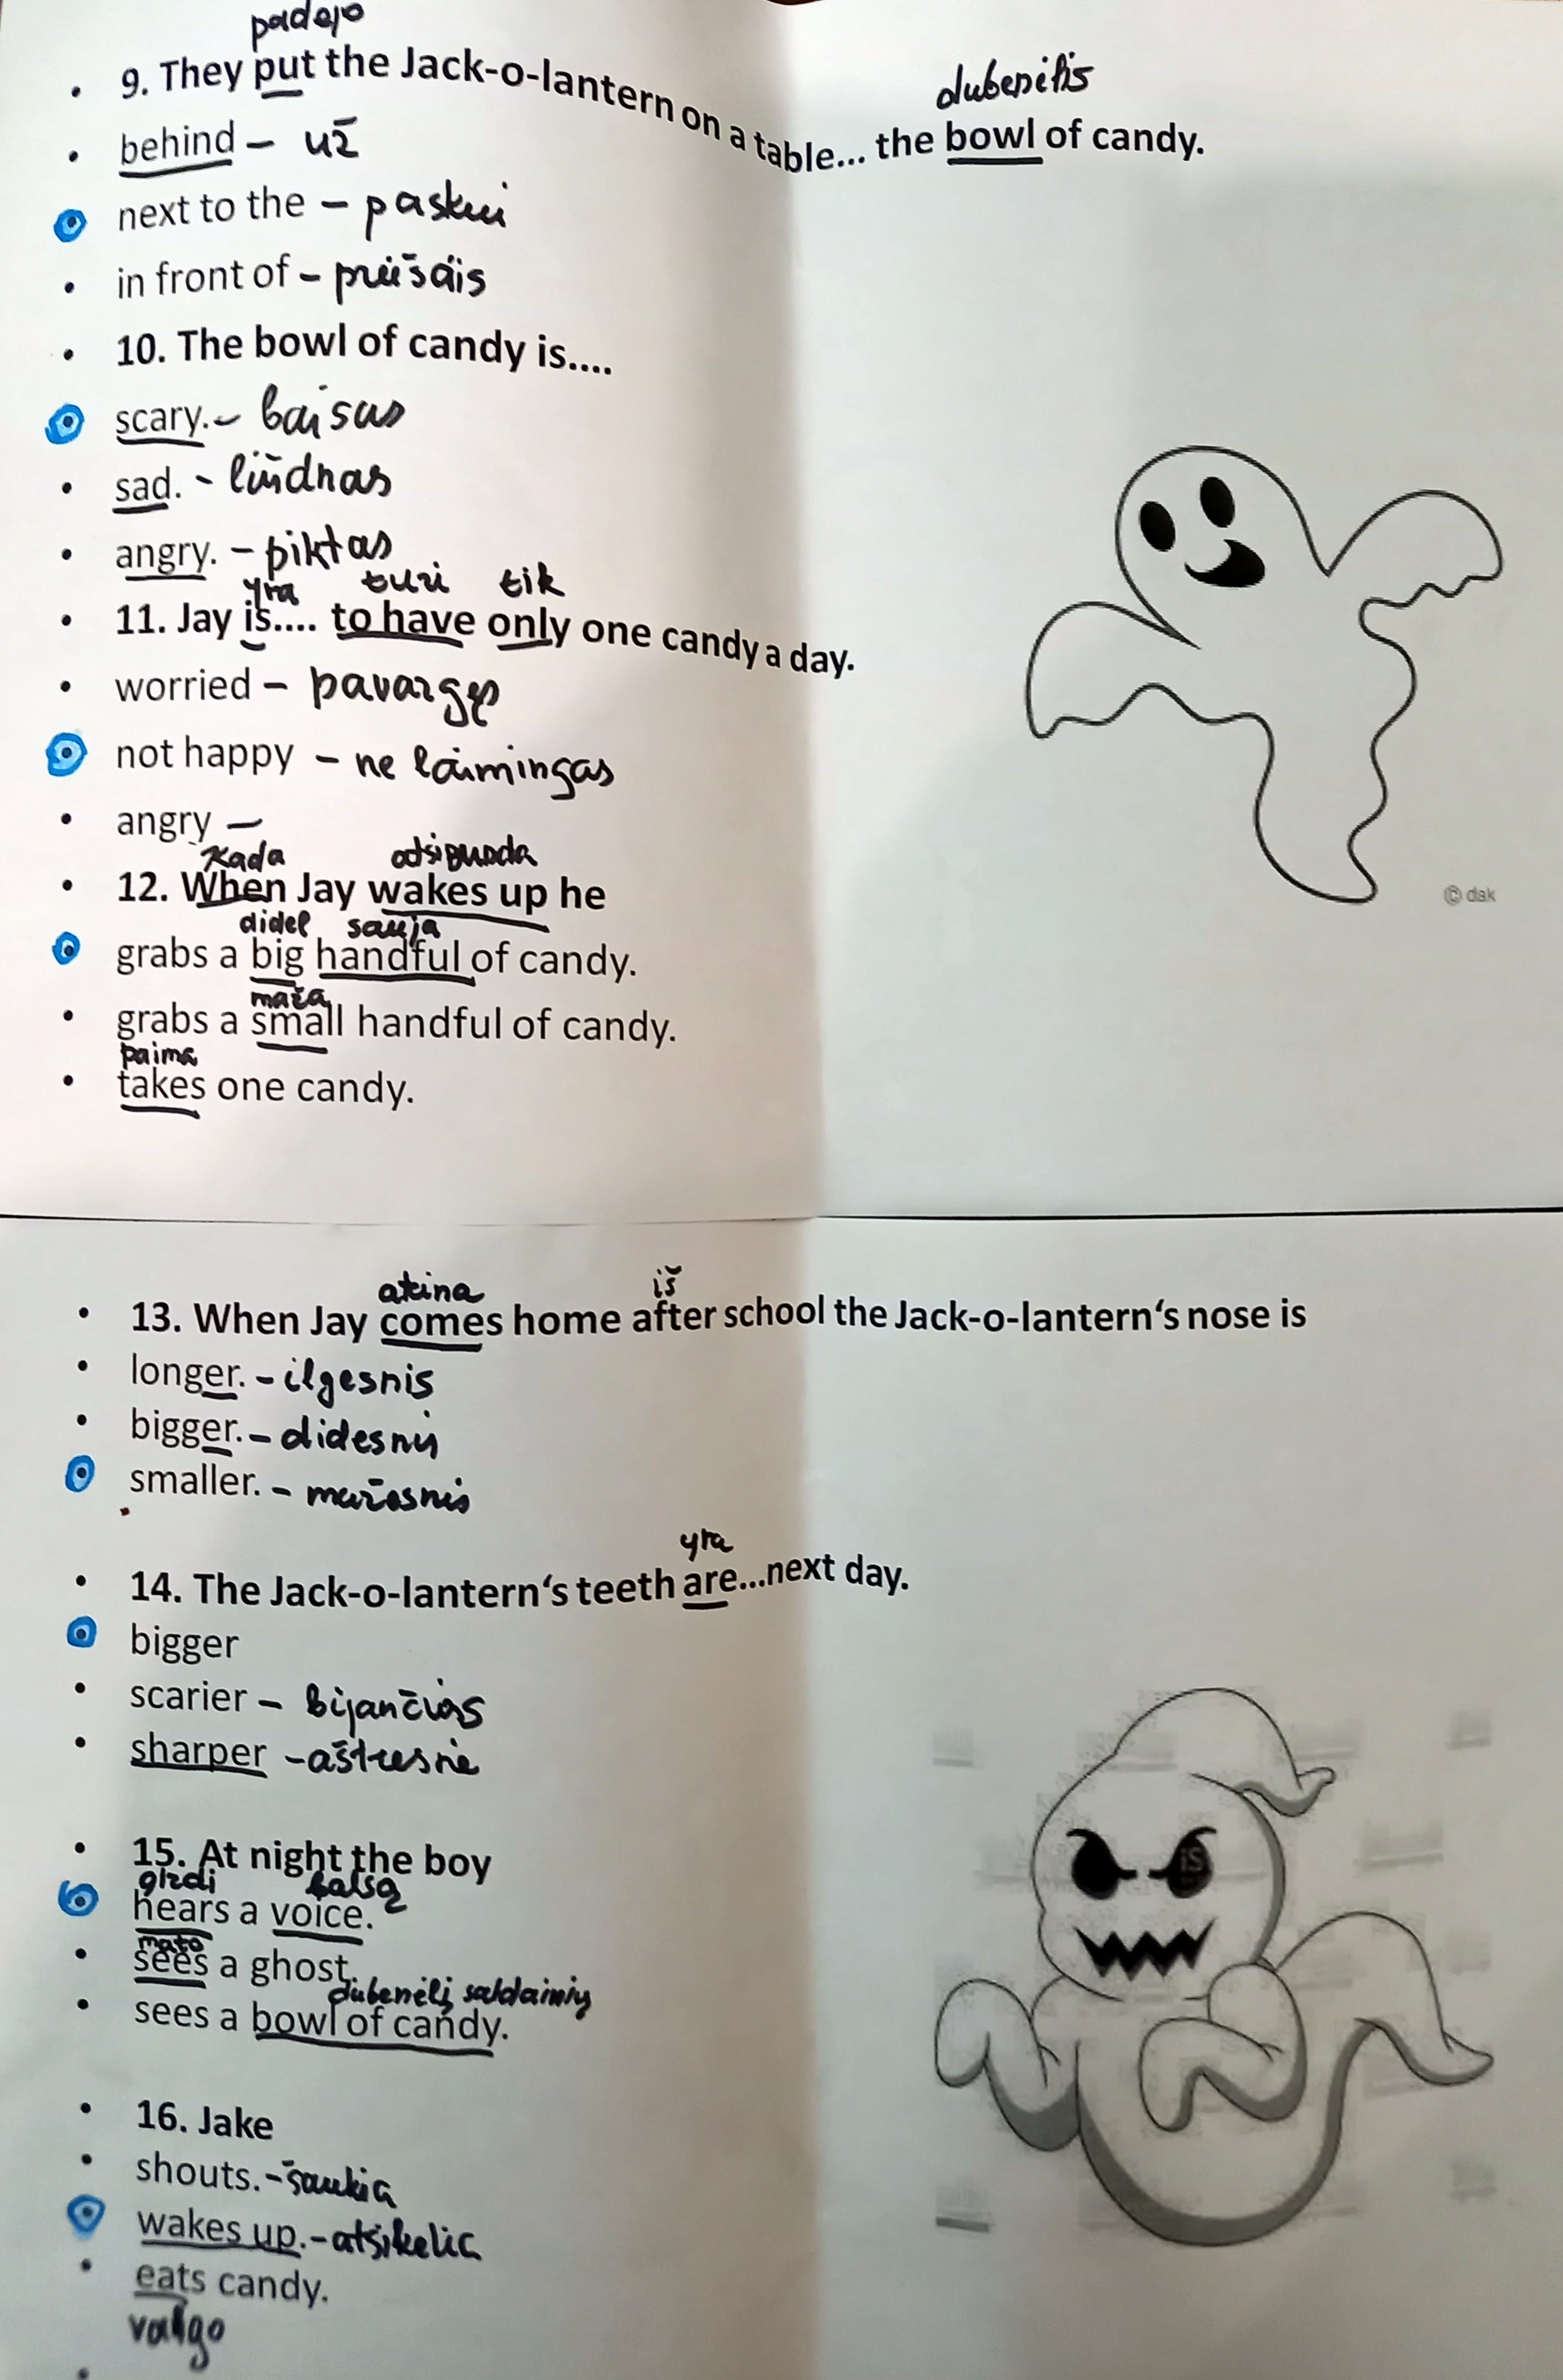 padėjo
• 9. They put the Jack-o-lantern on a table... the bowl of candy.
dubenėlis
• behind – už
• next to the – paskui
• in front of – priešais
• 10. The bowl of candy is....
• scary. – baisus
• sad. – liūdnas
• angry. – piktas
yra turi tik
• 11. Jay is.... to have only one candy a day.
• worried – pavargęs
• not happy – ne laimingas
• angry –
Kada atsibunda
• 12. When Jay wakes up he
didel sauja
• grabs a big handful of candy.
maža
• grabs a small handful of candy.
paima
• takes one candy.
© dak
ateina iš
• 13. When Jay comes home after school the Jack-o-lantern‘s nose is
• longer. – ilgesnis
• bigger. – didesnis
• smaller. – mažesnis
yra
• 14. The Jack-o-lantern‘s teeth are...next day.
• bigger
• scarier – bijančios
• sharper – aštresnė
• 15. At night the boy
girdi balsą
• hears a voice.
mato
• sees a ghost.
dubenėlį saldainių
• sees a bowl of candy.
is
• 16. Jake
• shouts. – šaukia
• wakes up. – atsikelia
• eats candy.
valgo